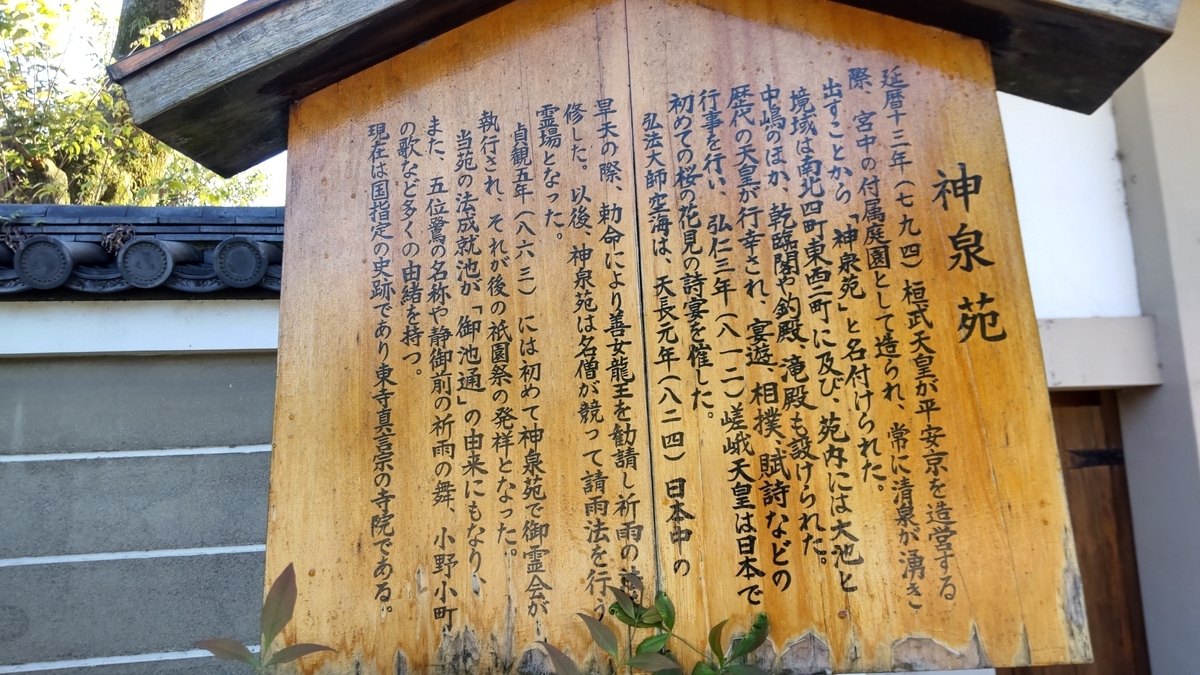 神泉苑
延暦十三年（七九四）桓武天皇が平安京を造営する
際、宮中の付属庭園として造られ、常に清泉が湧き
出すことから「神泉苑」と名付けられた。
境域は南北四町東西二町に及び、苑内には大池と
中嶋のほか、乾臨閣や釣殿、滝殿も設けられた。
歴代の天皇が行幸され、宴遊、相撲、賦詩などの
行事を行い、弘仁三年（八一二）嵯峨天皇は日本で
初めての桜の花見の詩宴を催した。
弘法大師空海は、天長元年（八二四）日本中の
旱天の際、勅命により善女龍王を勧請し祈雨の
修した。以後、神泉苑は名僧が競って請雨法を行う
霊場となった。
貞観五年（八六三）には初めて神泉苑で御霊会が
執行され、それが後の祇園祭の発祥となった。
当苑の法成就池が「御池通」の由来にもなり、
また、五位鷺の名称や静御前の祈雨の舞、小野小町
の歌など多くの由緒を持つ。
現在は国指定の史跡であり東寺真言宗の寺院である。